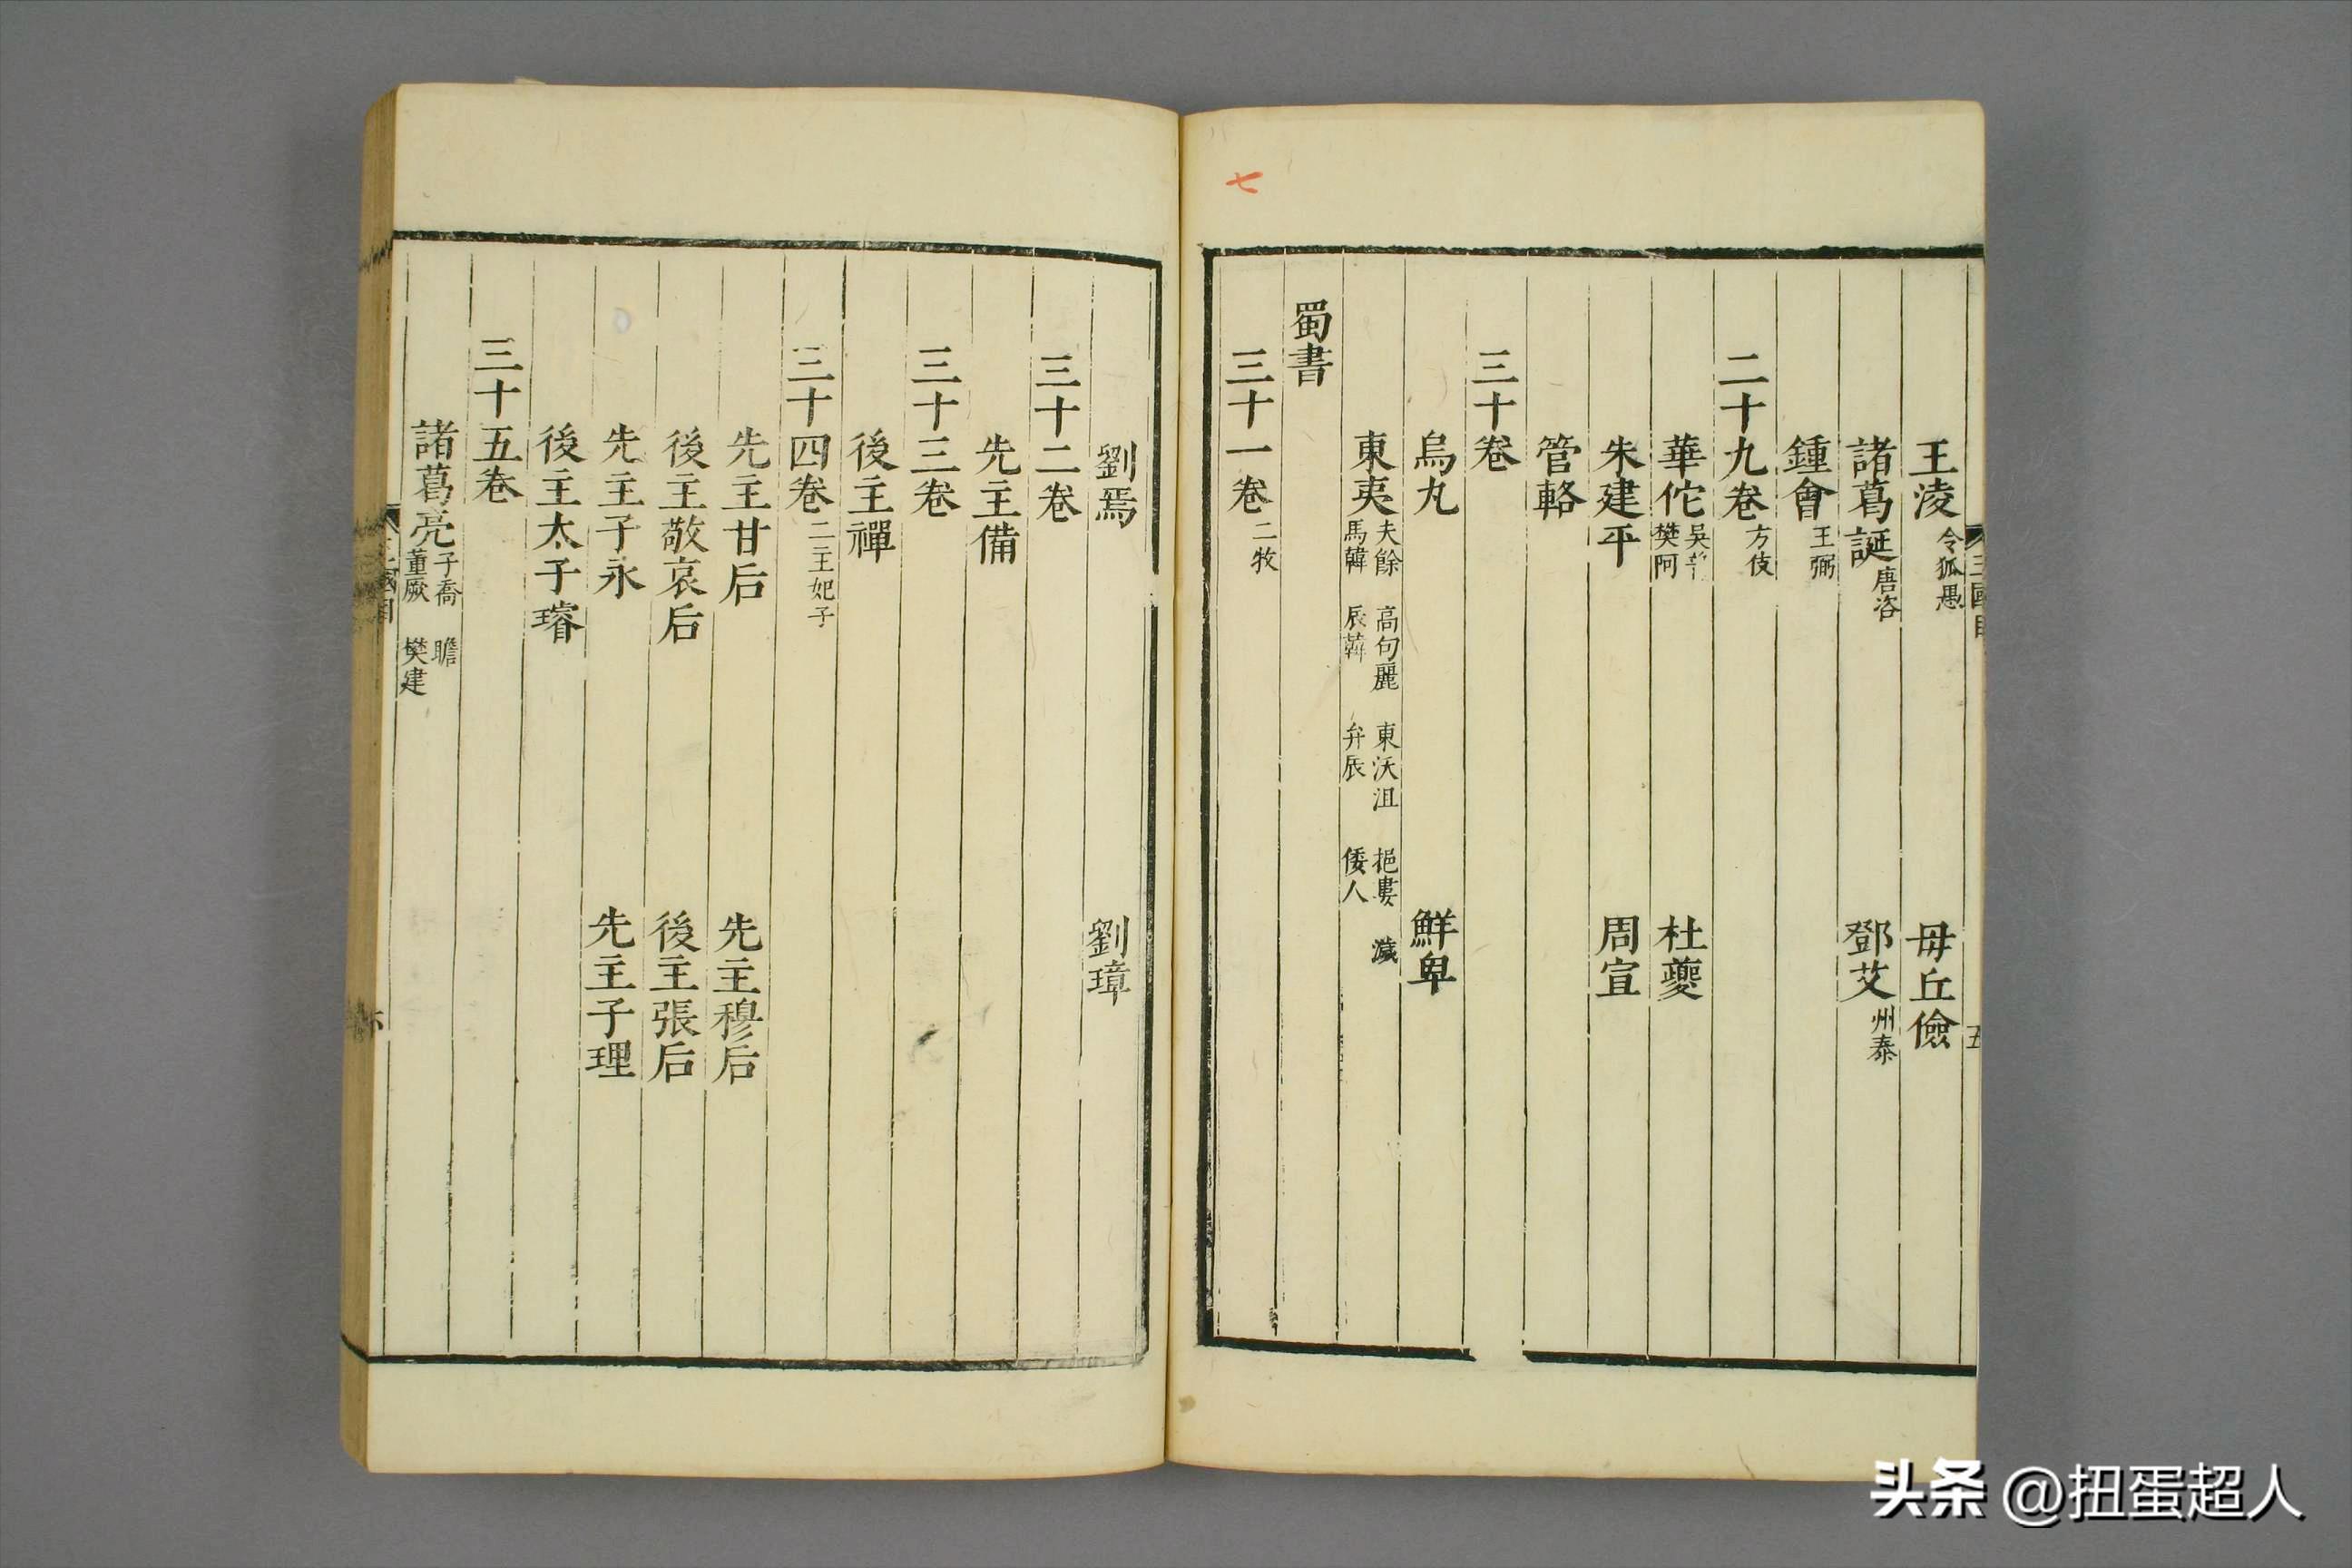 七
王淩 令狐愚 毋丘儉
諸葛誕 唐咨 鄧艾 州泰
鍾會 王弼
二十九卷 方伎
華佗 吳普 樊阿 杜夔
朱建平 周宣
管輅
三十卷
烏丸 鮮卑
東夷 夫餘 高句麗 東沃沮 挹婁 濊 馬韓 辰韓 弁辰 倭人
蜀書
三十一卷 二牧
劉焉 劉璋
三十二卷
先主備
三十三卷
後主禪
三十四卷 二主妃子
先主甘后 先主穆后
後主敬哀后 後主張后
先主子永 先主子理
後主太子璿
三十五卷
諸葛亮 子喬 瞻 董厥 樊建
三國目 五
头条 @扭蛋超人